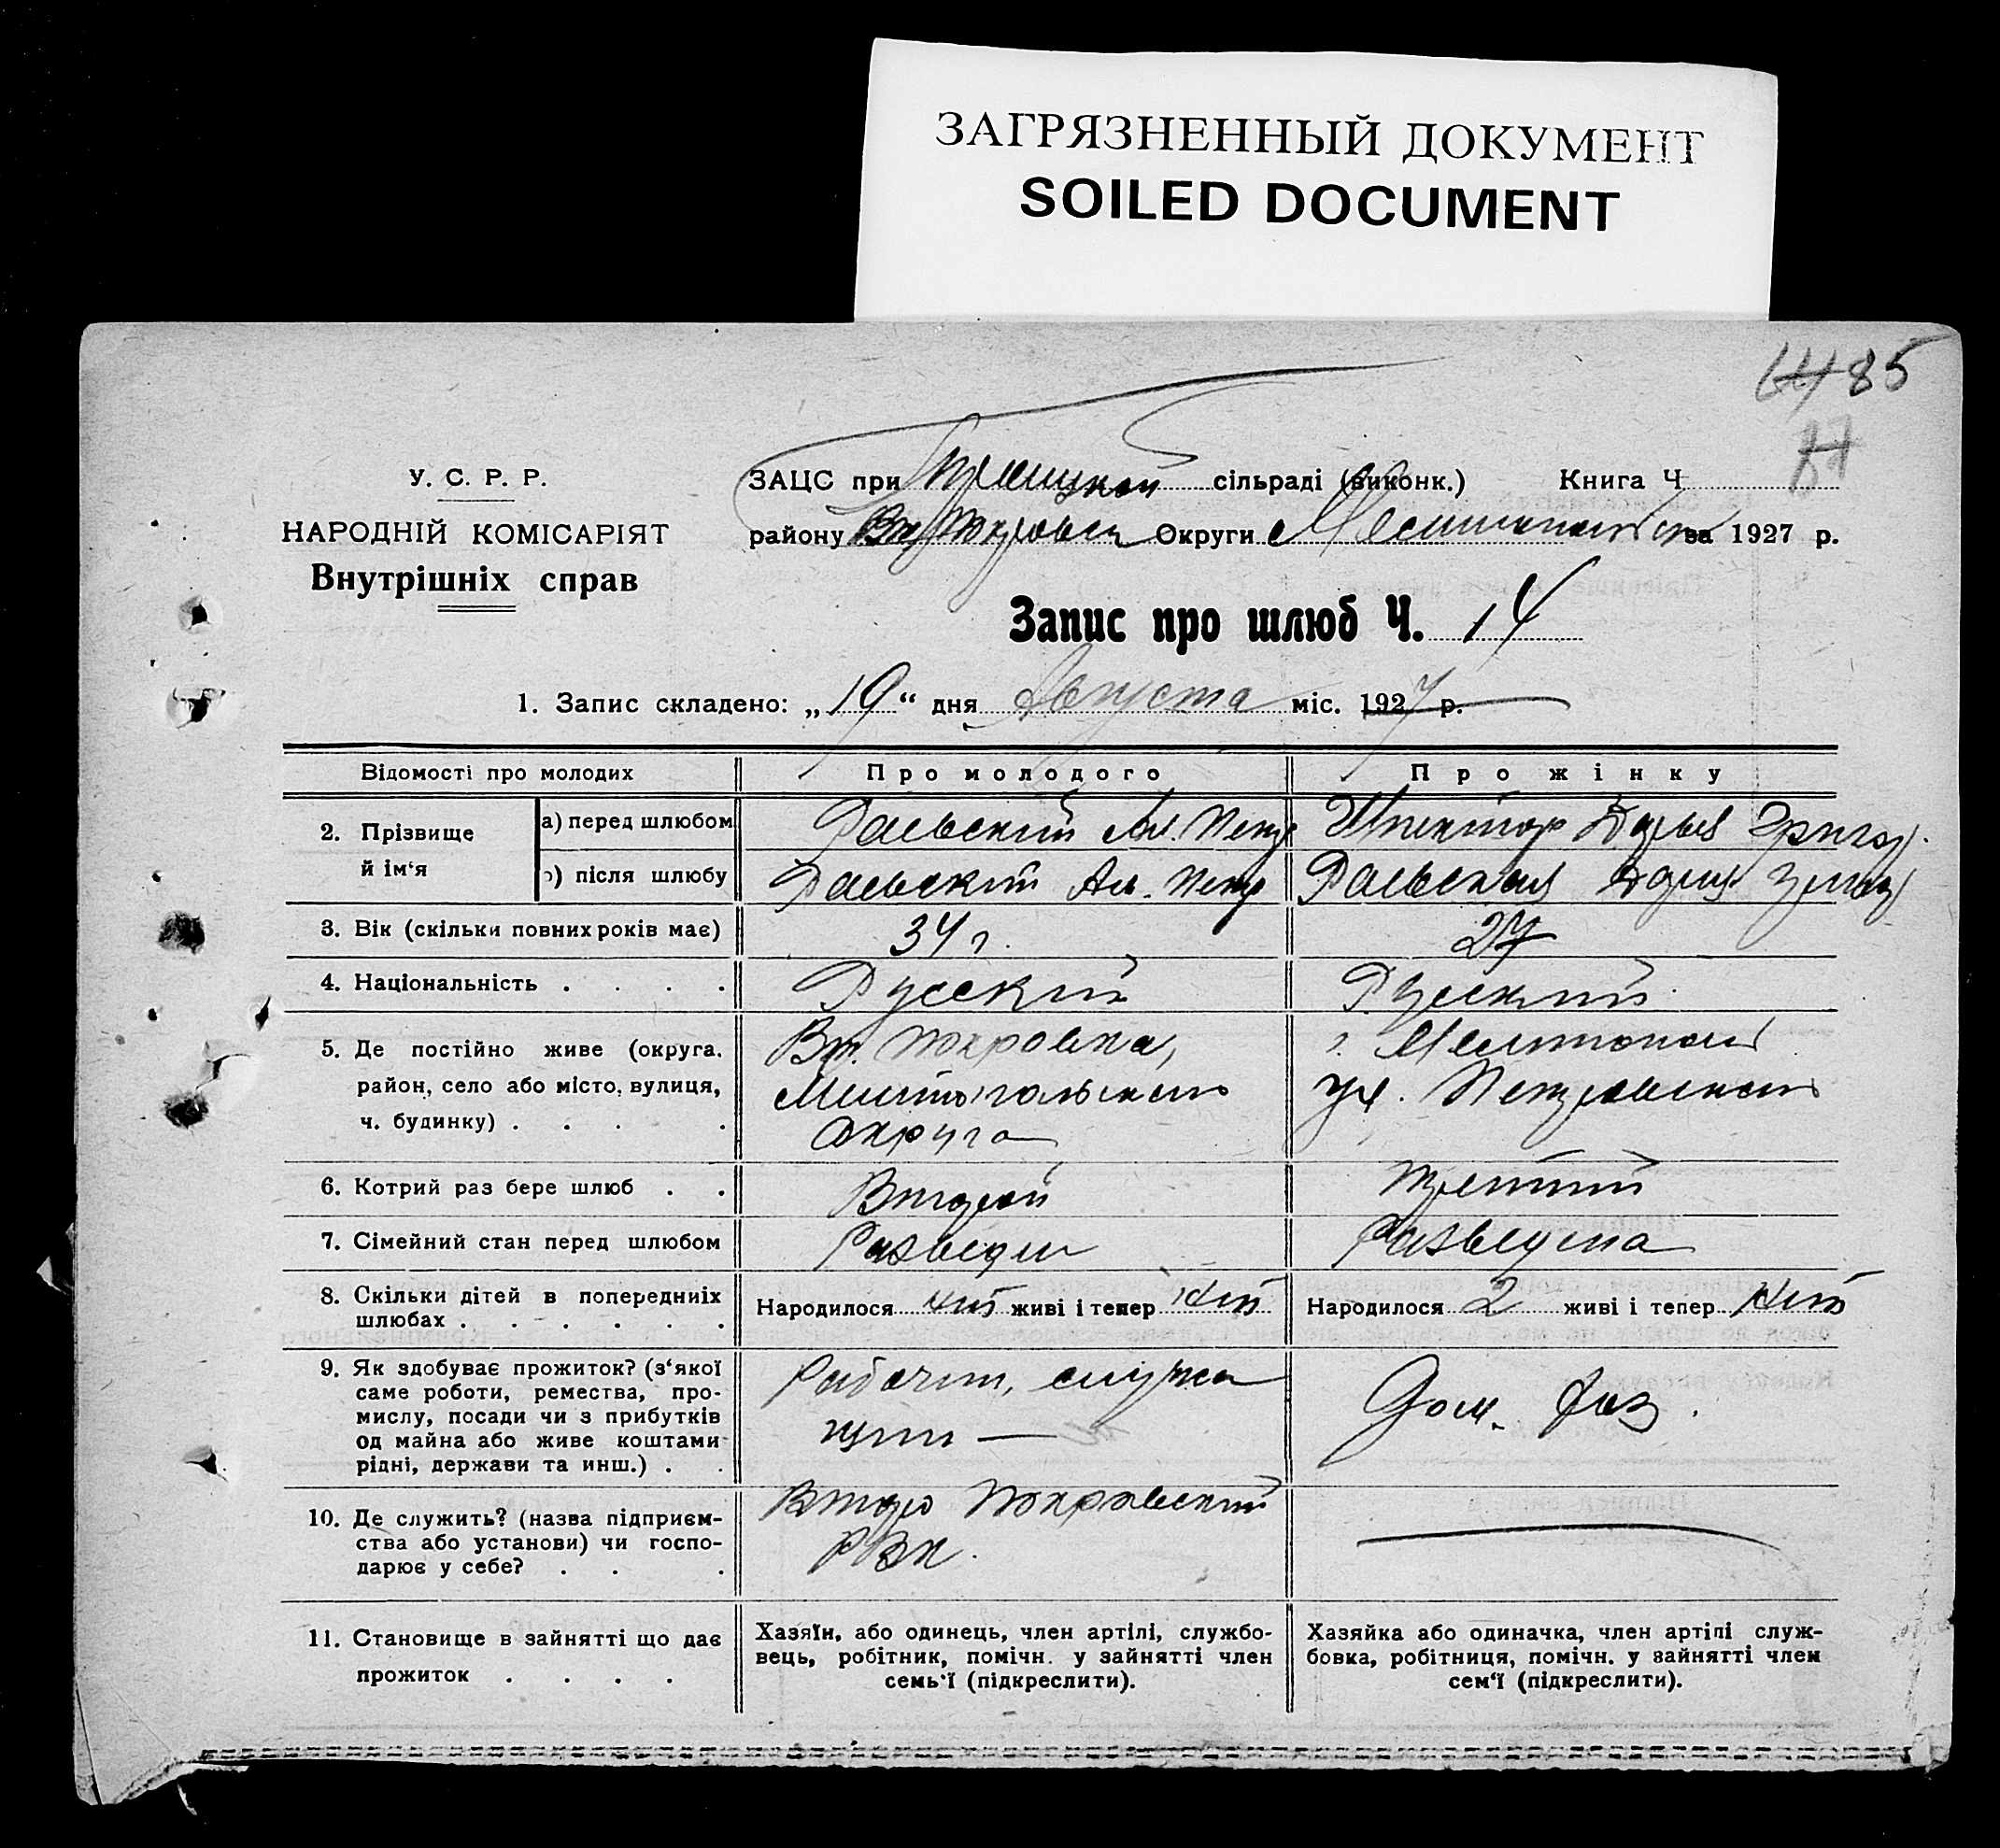 ЗАГРЯЗНЕННЫЙ ДОКУМЕНТ
SOILED DOCUMENT
85
У. С. Р. Р.
НАРОДНІЙ КОМІСАРІЯТ
Внутрішніх справ
ЗАЦС при сільраді (виконк.) Книга Ч
району Вт Покровск Округи Мелитопольск за 1927 р.
Запис про шлюб Ч. 14
1. Запис складено: „19“ дня Августа міс. 1927 р.
Відомості про молодих Про молодого Про жінку
2. Прізвище й ім‘я
а) перед шлюбом Раевский Ал. Петр Дарья Григор.
б) після шлюбу Раевский Ал. Петр Раевская Дарья Григор
3. Вік (скільки повних років має) 34 г. 27
4. Національність . . . . Русский Русский
5. Де постійно живе (округа, район, село або місто, вулиця, ч. будинку) . . . .
Вт. Покровка,
Мелитопольского
округа
г. Мелитополь
ул. Петровского
6. Котрий раз бере шлюб . . Второй Третий
7. Сімейний стан перед шлюбом Разведен Разведена
8. Скільки дітей в попередніх шлюбах . . . . . .
Народилося нет живі і тепер нет
Народилося 2 живі і тепер нет
9. Як здобуває прожиток? (з‘якої
саме роботи, ремества, про-
мислу, посади чи з прибутків
од майна або живе коштами
рідні, держави та инш.) . .
Рабочий, служа
щий —
Дом. хоз.
10. Де служить? (назва підприєм-
ства або установи) чи госпо-
дарює у себе? . . .
Второ Покровский
РВК.
11. Становище в зайнятті що дає
прожиток . . . .
Хазяїн, або одинець, член артілі, службо-
вець, робітник, помічн. у зайнятті член
семь‘ї (підкреслити).
Хазяйка або одиначка, член артілі служ-
бовка, робітниця, помічн. у зайнятті член
сем‘ї (підкреслити).